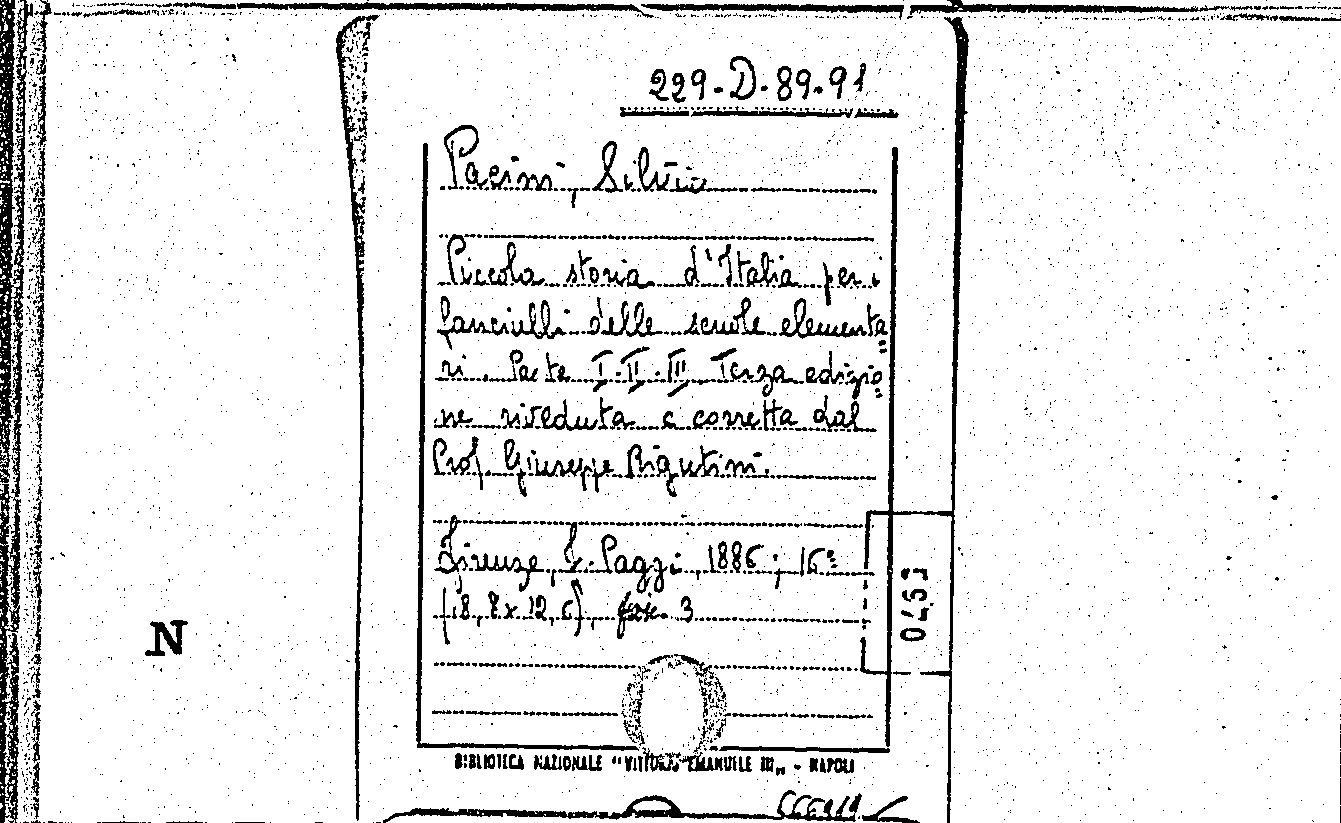 229-D-89.91
Pacini, Silvio
Piccola storia d'Italia per i
fanciulli delle scuole elementa
ri. Parte I-II-III Terza edizio
ne riveduta e corretta dal
Prof. Giuseppe Rigutini.
Firenze, F. Paggi, 1886; 16º
(18,8x12,6), fasc. 3
0793
N
BIBLIOTECA NAZIONALE "VITTORIO EMANUELE III" - NAPOLI